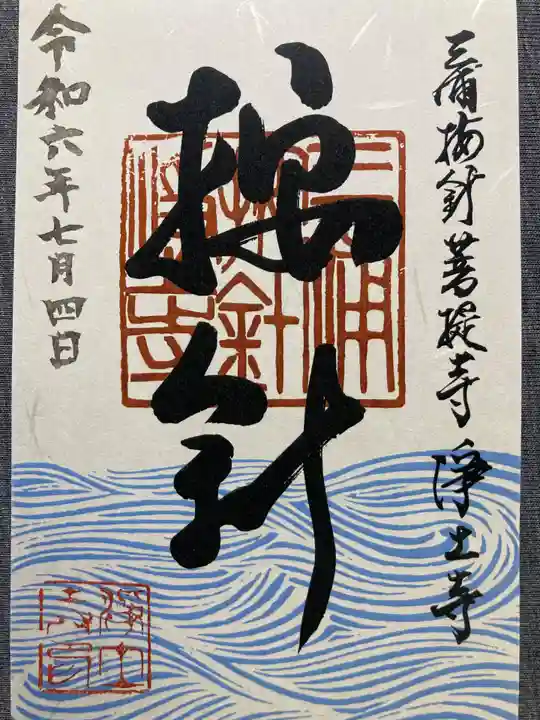 三浦按針菩提寺 淨土寺
按針
令和六年七月四日
三浦
按針
淨土寺印